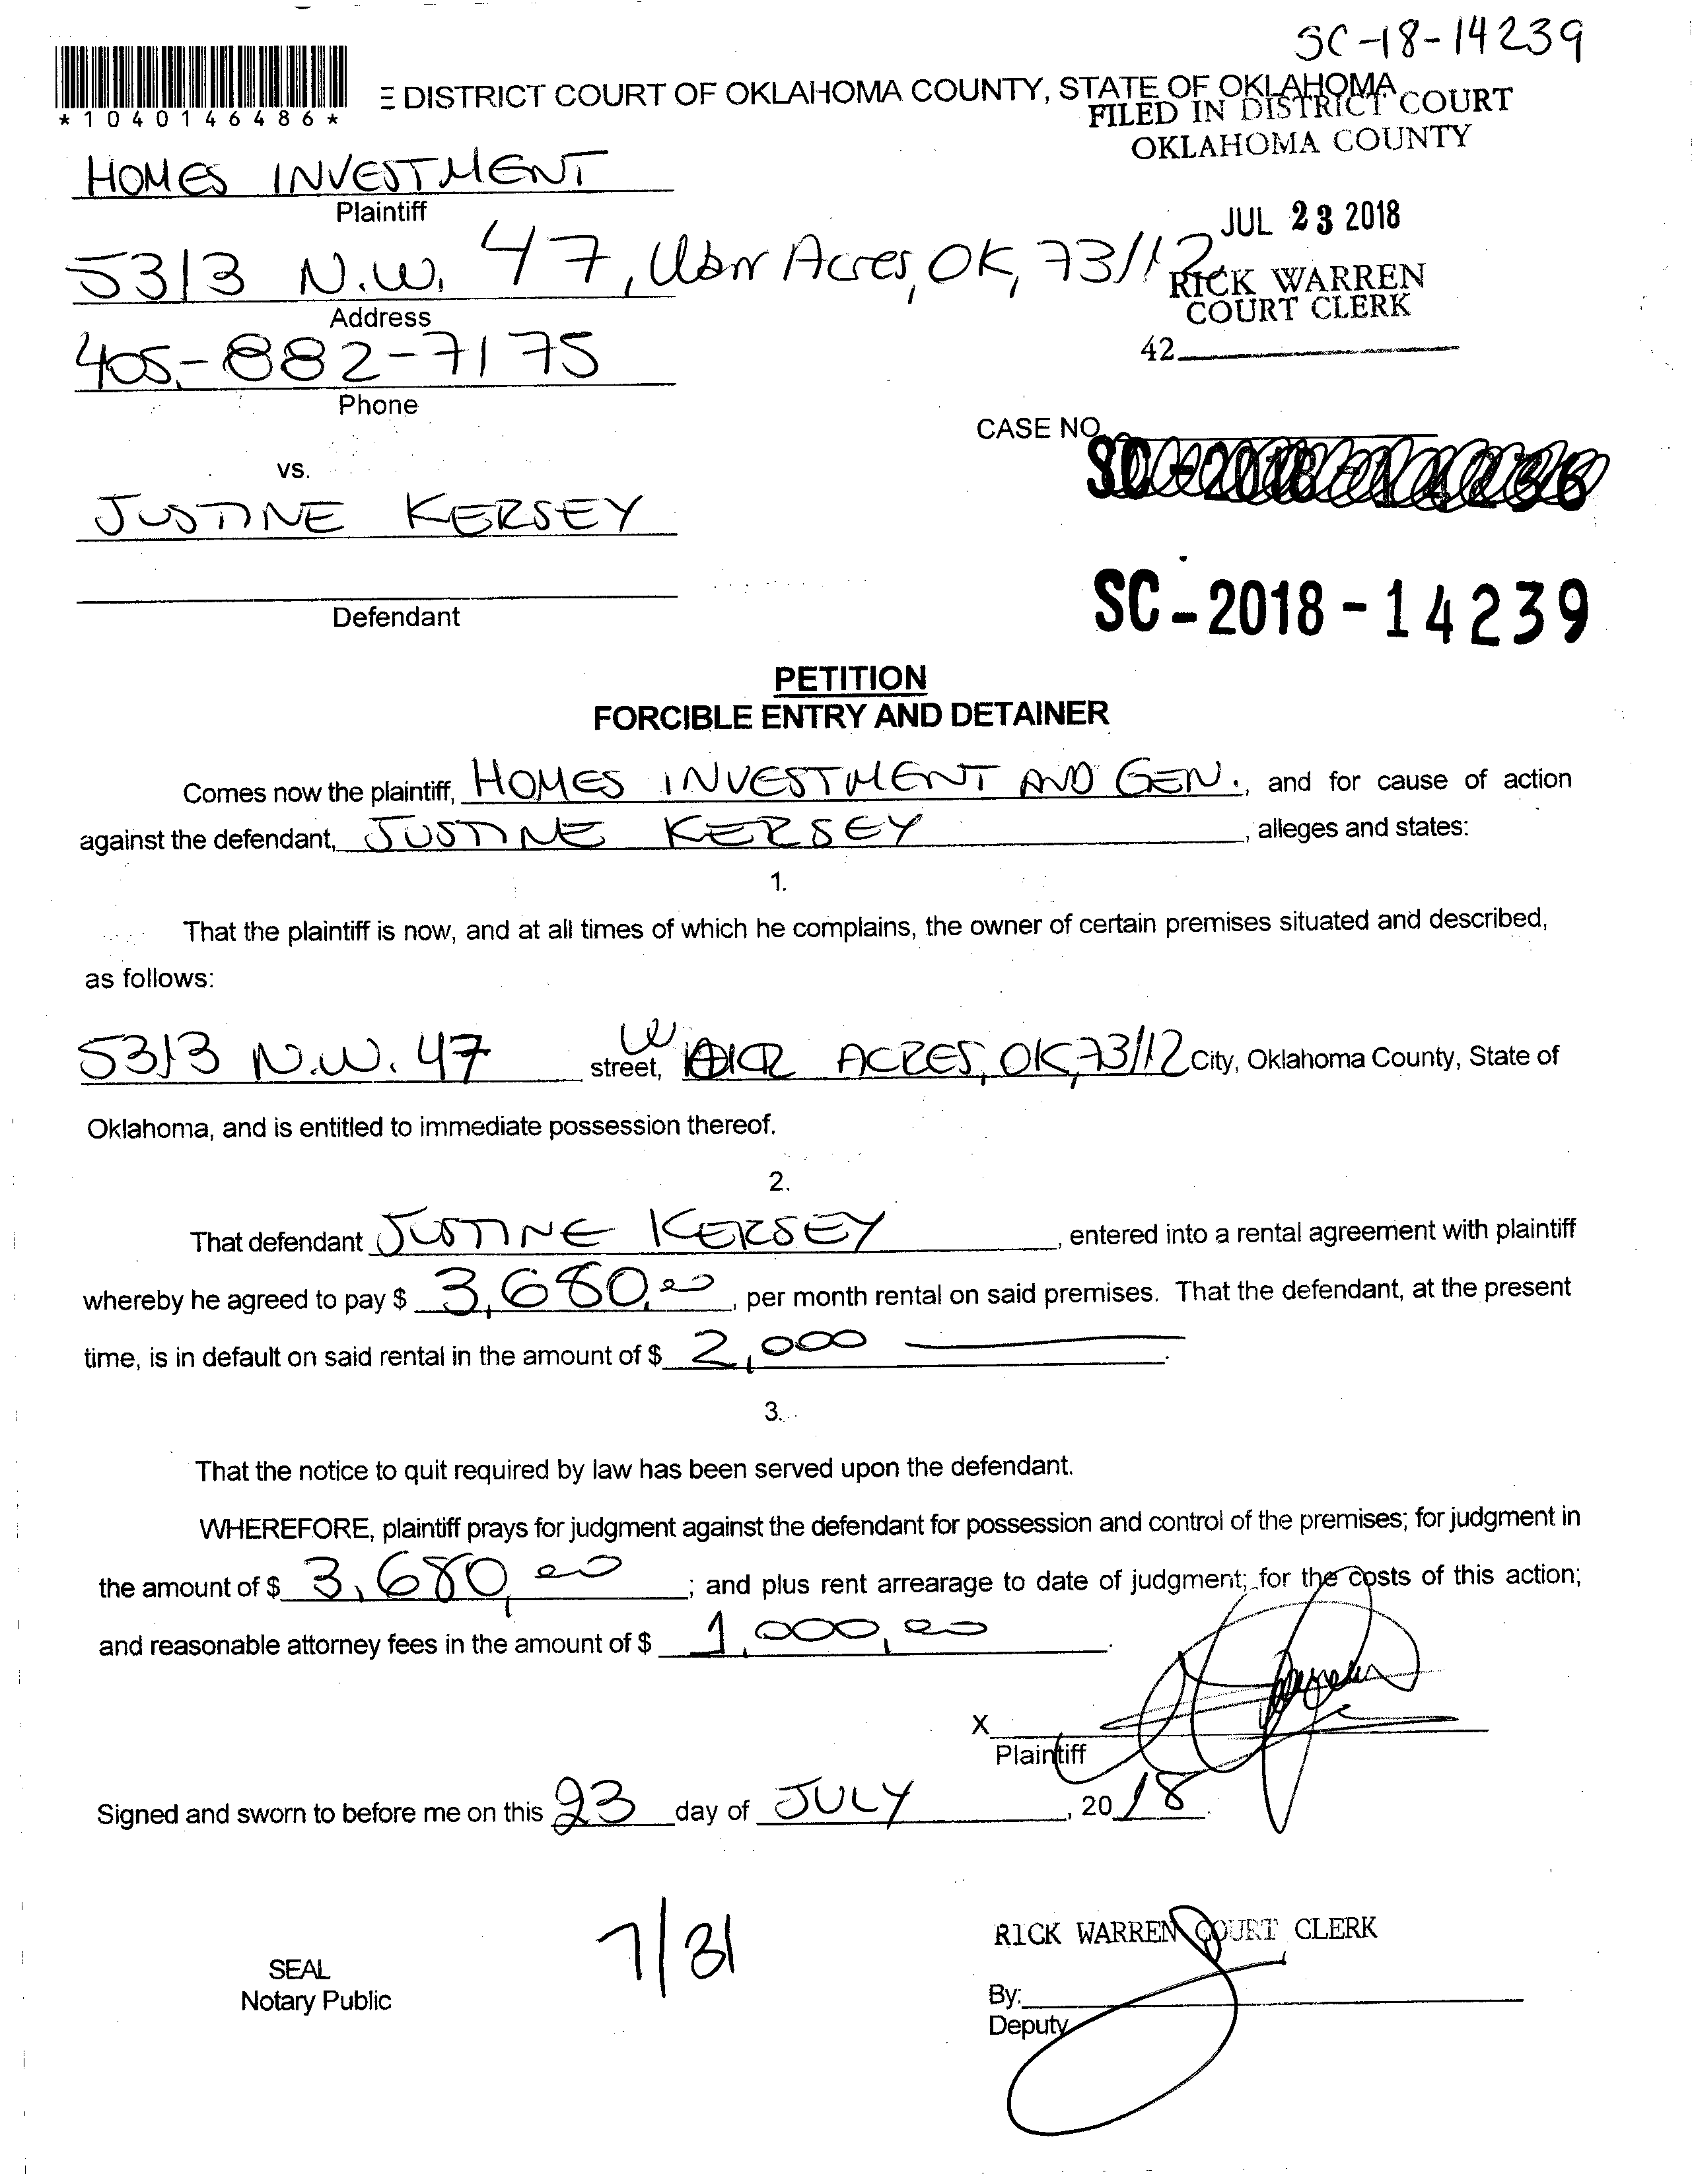 SC-18-14239
*1040146486*
E DISTRICT COURT OF OKLAHOMA COUNTY, STATE OF OKLAHOMA
FILED IN DISTRICT COURT
OKLAHOMA COUNTY
HOMES INVESTMENT
Plaintiff
JUL 23 2018
5313 N.W. 47, Acres, OK, 73112
RICK WARREN
COURT CLERK
Address
405-882-7175
42
Phone
CASE NO.
SC-2018-14236
vs.
JUSTINE KERSEY
SC-2018-14239
Defendant
PETITION
FORCIBLE ENTRY AND DETAINER
Comes now the plaintiff, HOMES INVESTMENT AND GEN., and for cause of action
against the defendant, JUSTINE KERSEY, alleges and states:
1.
That the plaintiff is now, and at all times of which he complains, the owner of certain premises situated and described,
as follows:
5313 N.W. 47 street, ACRES, OK, 73112 City, Oklahoma County, State of
Oklahoma, and is entitled to immediate possession thereof.
2.
That defendant JUSTINE KERSEY, entered into a rental agreement with plaintiff
whereby he agreed to pay $ 3,680.00, per month rental on said premises. That the defendant, at the present
time, is in default on said rental in the amount of $ 2,000.
3.
That the notice to quit required by law has been served upon the defendant.
WHEREFORE, plaintiff prays for judgment against the defendant for possession and control of the premises; for judgment in
the amount of $ 3,680,00; and plus rent arrearage to date of judgment; for the costs of this action;
and reasonable attorney fees in the amount of $ 1,000,00.
X
Plaintiff
Signed and sworn to before me on this 23 day of JULY, 2018.
7/31
RICK WARREN COURT CLERK
SEAL
Notary Public
By:
Deputy